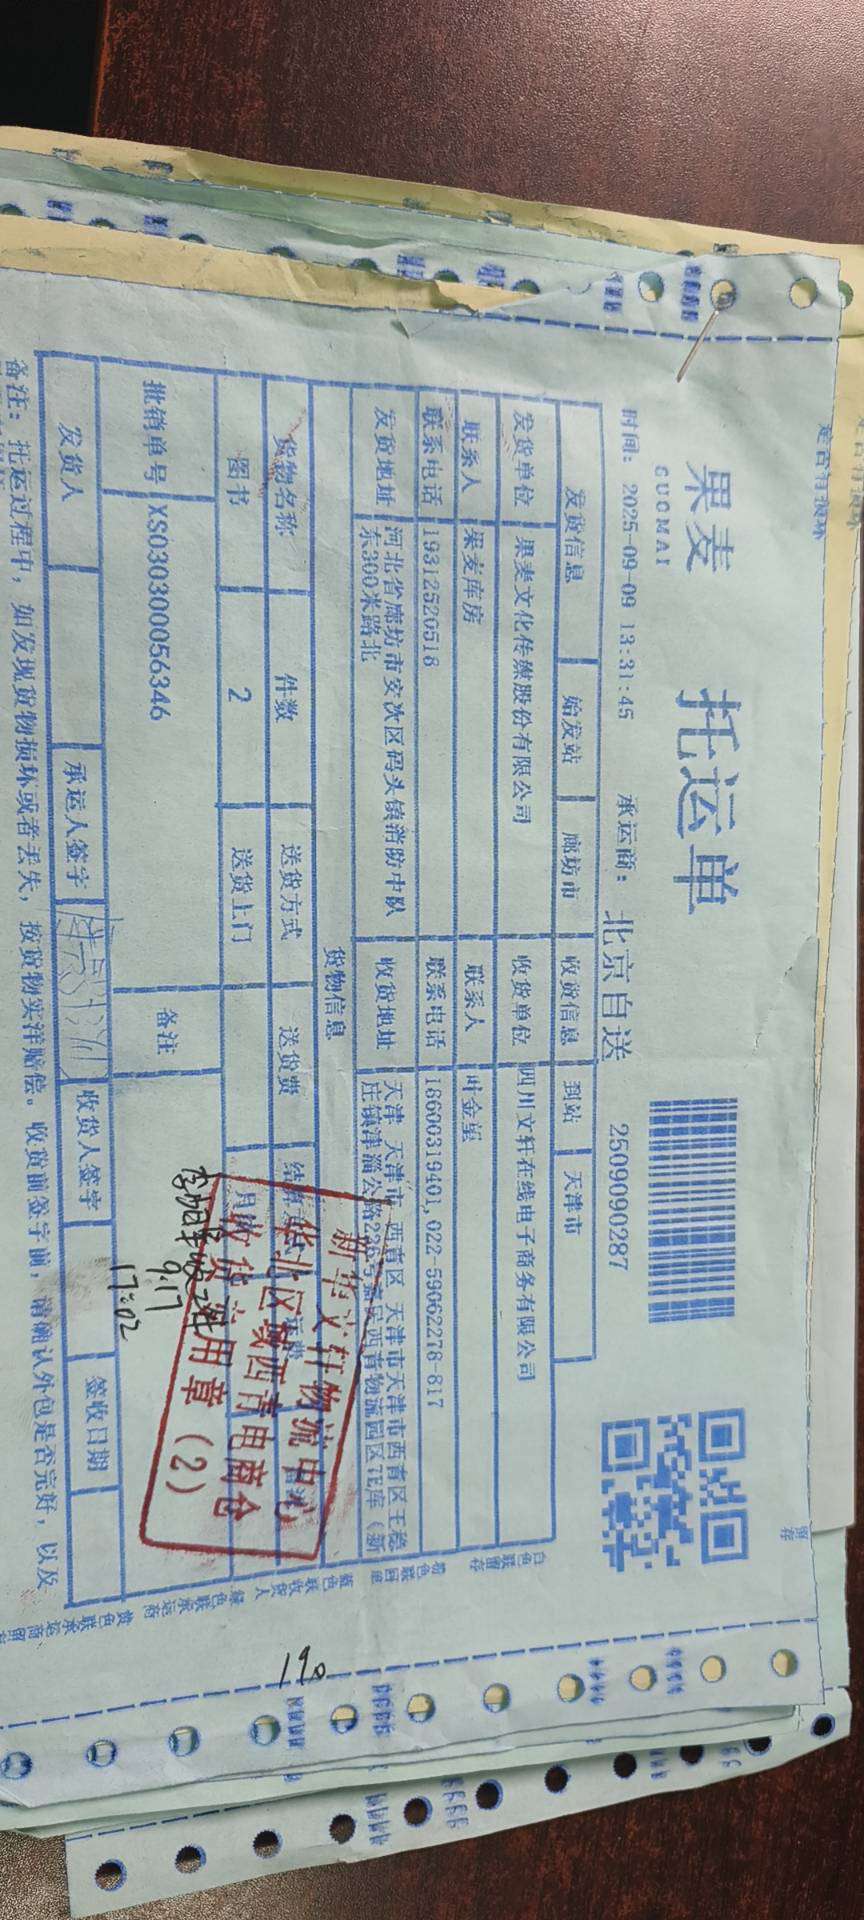 果麦
GUOMAI
托运单
时间: 2025-09-09 13:31:45 承运商: 北京自送 2509090287
发货信息 始发站 廊坊市 收货信息 到站 天津市
发货单位 果麦文化传媒股份有限公司 收货单位 四川文轩在线电子商务有限公司
联系人 果麦库房 联系人 叶金星
联系电话 19312520518 联系电话 18600319401,022-59062278-817
发货地址 河北省廊坊市安次区码头镇消防中队东300米路北 收货地址 天津 天津市 西青区 天津市天津市西青区王稳庄镇津淄公路
西青物流园区7E库(新
货物信息
货物名称 件数 送货方式 送货费
图书 2 送货上门
批销单号 XS030300056346 备注
发货人 承运人签字 收货人签字 签收日期
备注: 托运过程中, 如发现货物损坏或者丢失, 按货物实洋赔偿。收货前签字前, 请确认外包是否完好, 以及
新华文轩物流中心
华北区域西青电商仓
收货专用章(2)
9.17
17:02
190
白色联留存
蓝色联收货人
绿色联承运商
黄色联承运商留存
留存